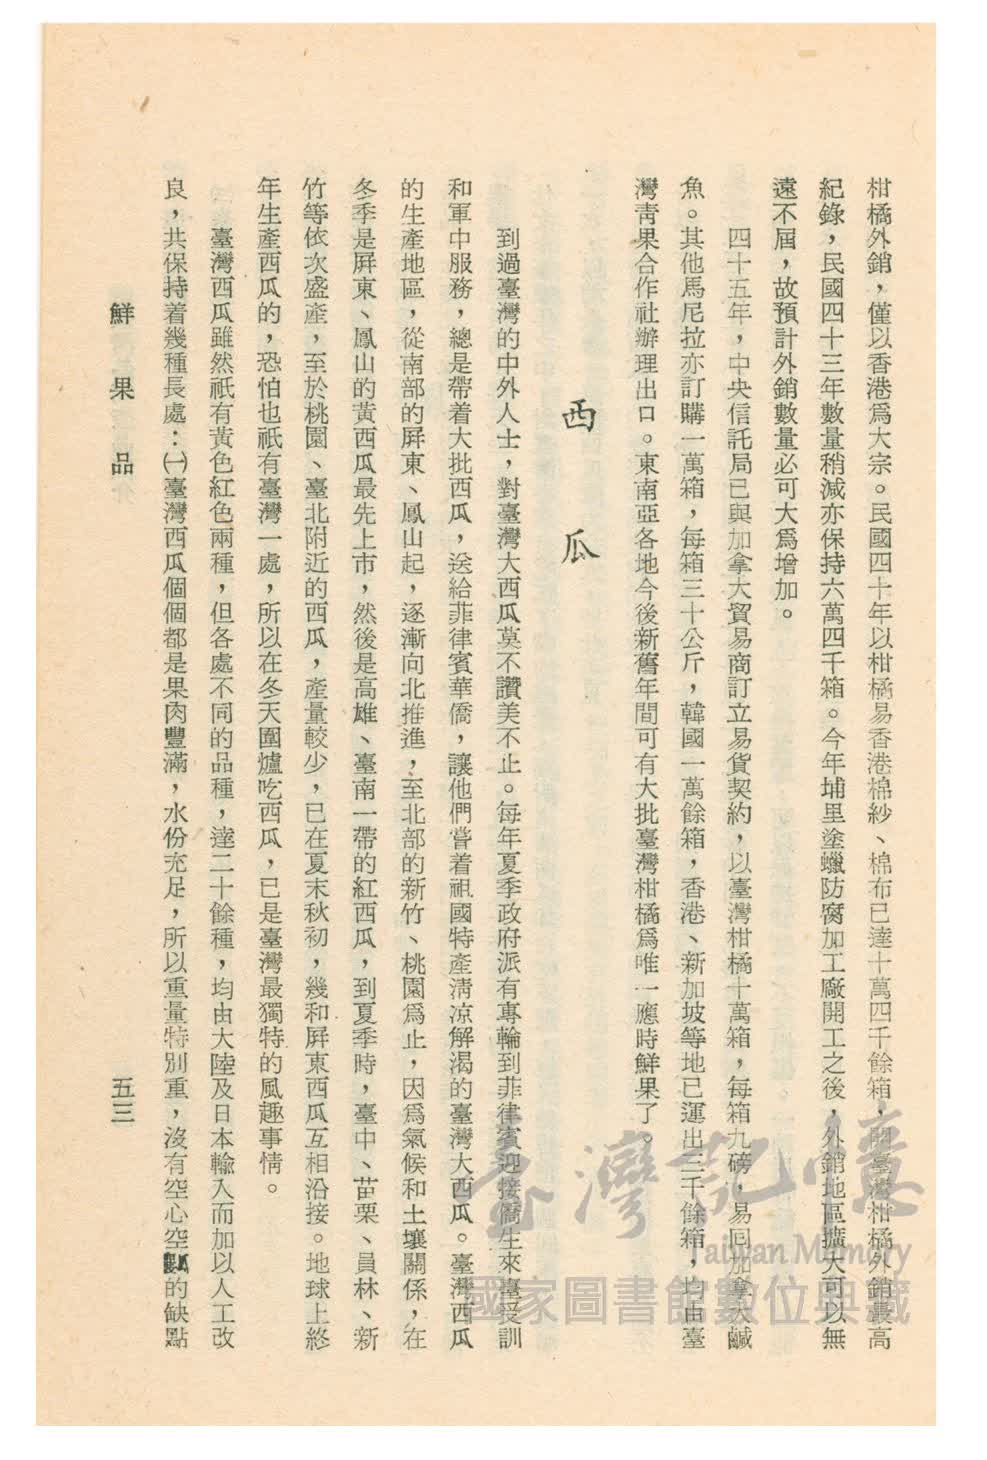 柑橘外銷，僅以香港爲大宗。民國四十年以柑橘易香港棉紗、棉布已達十萬四千餘箱，開臺灣柑橘外銷最高
紀錄，民國四十三年數量稍減亦保持六萬四千箱。今年埔里塗蠟防腐加工廠開工之後，外銷地區擴大可以無
遠不屆，故預計外銷數量必可大爲增加。
四十五年，中央信託局已與加拿大貿易商訂立易貨契約，以臺灣柑橘十萬箱，每箱九磅，易回加拿大鹹
魚。其他馬尼拉亦訂購一萬箱，每箱三十公斤，韓國一萬餘箱，香港、新加坡等地已運出三千餘箱，均由臺
灣靑果合作社辦理出口。東南亞各地今後新舊年間可有大批臺灣柑橘爲唯一應時鮮果了。
西瓜
到過臺灣的中外人士，對臺灣大西瓜莫不讚美不止。每年夏季政府派有專輪到菲律賓迎接僑生來臺受訓
和軍中服務，總是帶着大批西瓜，送給菲律賓華僑，讓他們嘗着祖國特產淸凉解渴的臺灣大西瓜。臺灣西瓜
的生產地區，從南部的屏東、鳳山起，逐漸向北推進，至北部的新竹、桃園爲止，因爲氣候和土壤關係，在
冬季是屏東、鳳山的黃西瓜最先上市，然後是高雄、臺南一帶的紅西瓜，到夏季時，臺中、苗栗、員林、新
竹等依次盛產，至於桃園、臺北附近的西瓜，產量較少，已在夏末秋初，幾和屏東西瓜互相沿接。地球上終
年生產西瓜的，恐怕也祇有臺灣一處，所以在冬天圍爐吃西瓜，已是臺灣最獨特的風趣事情。
臺灣西瓜雖然祇有黃色紅色兩種，但各處不同的品種，達二十餘種，均由大陸及日本輸入而加以人工改
良，共保持着幾種長處：㈠臺灣西瓜個個都是果肉豐滿，水份充足，所以重量特別重，沒有空心空瓤的缺點
鮮果品
五三
台灣記憶
Taiwan Memory
國家圖書館數位典藏